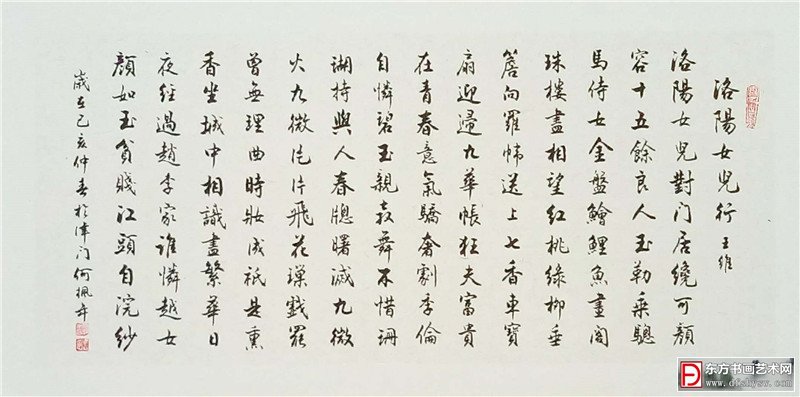 洛陽女兒行 王維
洛陽女兒對门居纔可顏
容十五餘良人玉勒乘驄
馬侍女金盤鱠鯉魚畫閣
珠樓盡相望紅桃綠柳垂
簷向羅帷送上七香車寶
扇迎歸九華帳狂夫富貴
在青春意氣驕奢劇季倫
自憐碧玉親教舞不惜珊
瑚持與人春牕曙滅九微
火九微片片飛花璅戲罷
曾無理曲時妝成祇是熏
香坐城中相識盡繁華日
夜經過趙李家誰憐越女
顏如玉貧賤江頭自浣紗
歲在己亥仲春於津门何
东方书画艺术网
www.dfshysw.com